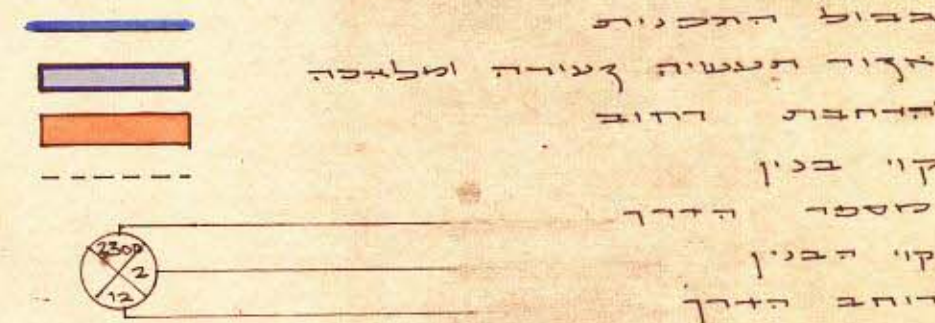 גבול התכנית
אזור תעשיה זעירה ומלאכה
הרחבת רחוב
קוי בנין
מספר הדרך
קוי הבנין
רוחב הדרך
2
12